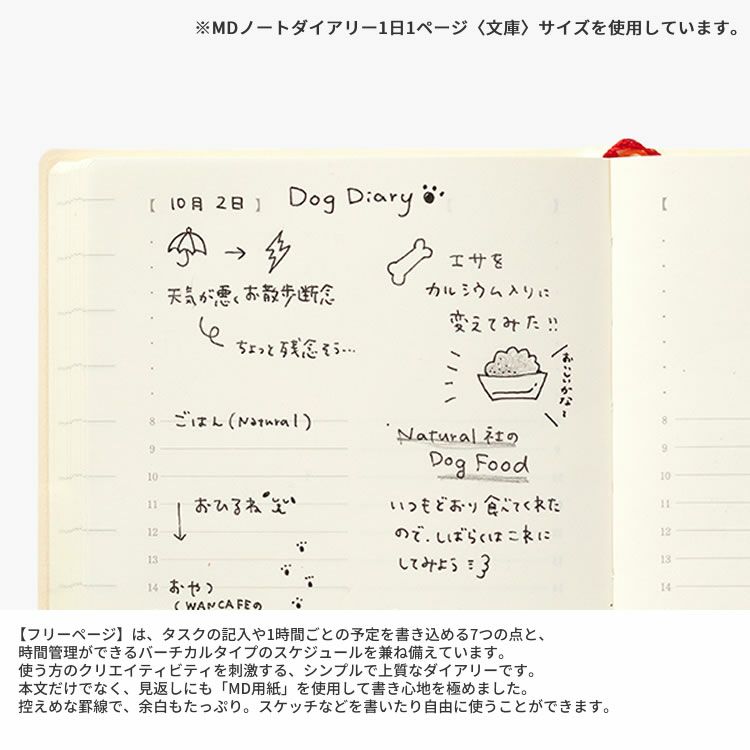 ※MDノートダイアリー1日1ページ〈文庫〉サイズを使用しています。
【 10月 2日 】 Dog Diary
【
→
天気が悪くお散歩断念
ちょっと残念そう…
エサを
カルシウム入りに
変えてみた!!
おいしいかな〜
8 ごはん(Natural)
9
10
11 おひるね
12
13
14 おやつ
(WANCAFEの
Natural 社の
Dog Food
いつもどおり食べてくれた
ので、しばらくはこれに
してみよう
8
9
10
11
12
13
14
【フリーページ】は、タスクの記入や1時間ごとの予定を書き込める7つの点と、
時間管理ができるバーチカルタイプのスケジュールを兼ね備えています。
使う方のクリエイティビティを刺激する、シンプルで上質なダイアリーです。
本文だけでなく、見返しにも「MD用紙」を使用して書き心地を極めました。
控えめな罫線で、余白もたっぷり。スケッチなどを書いたり自由に使うことができます。